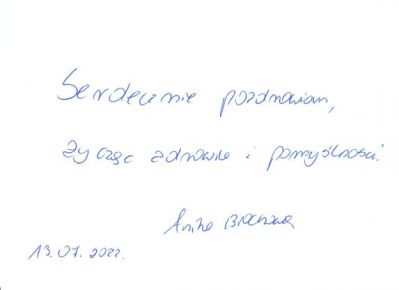 Serdecznie pozdrawiam,
życząc zdrowia i pomyślności!
13.07.2022.